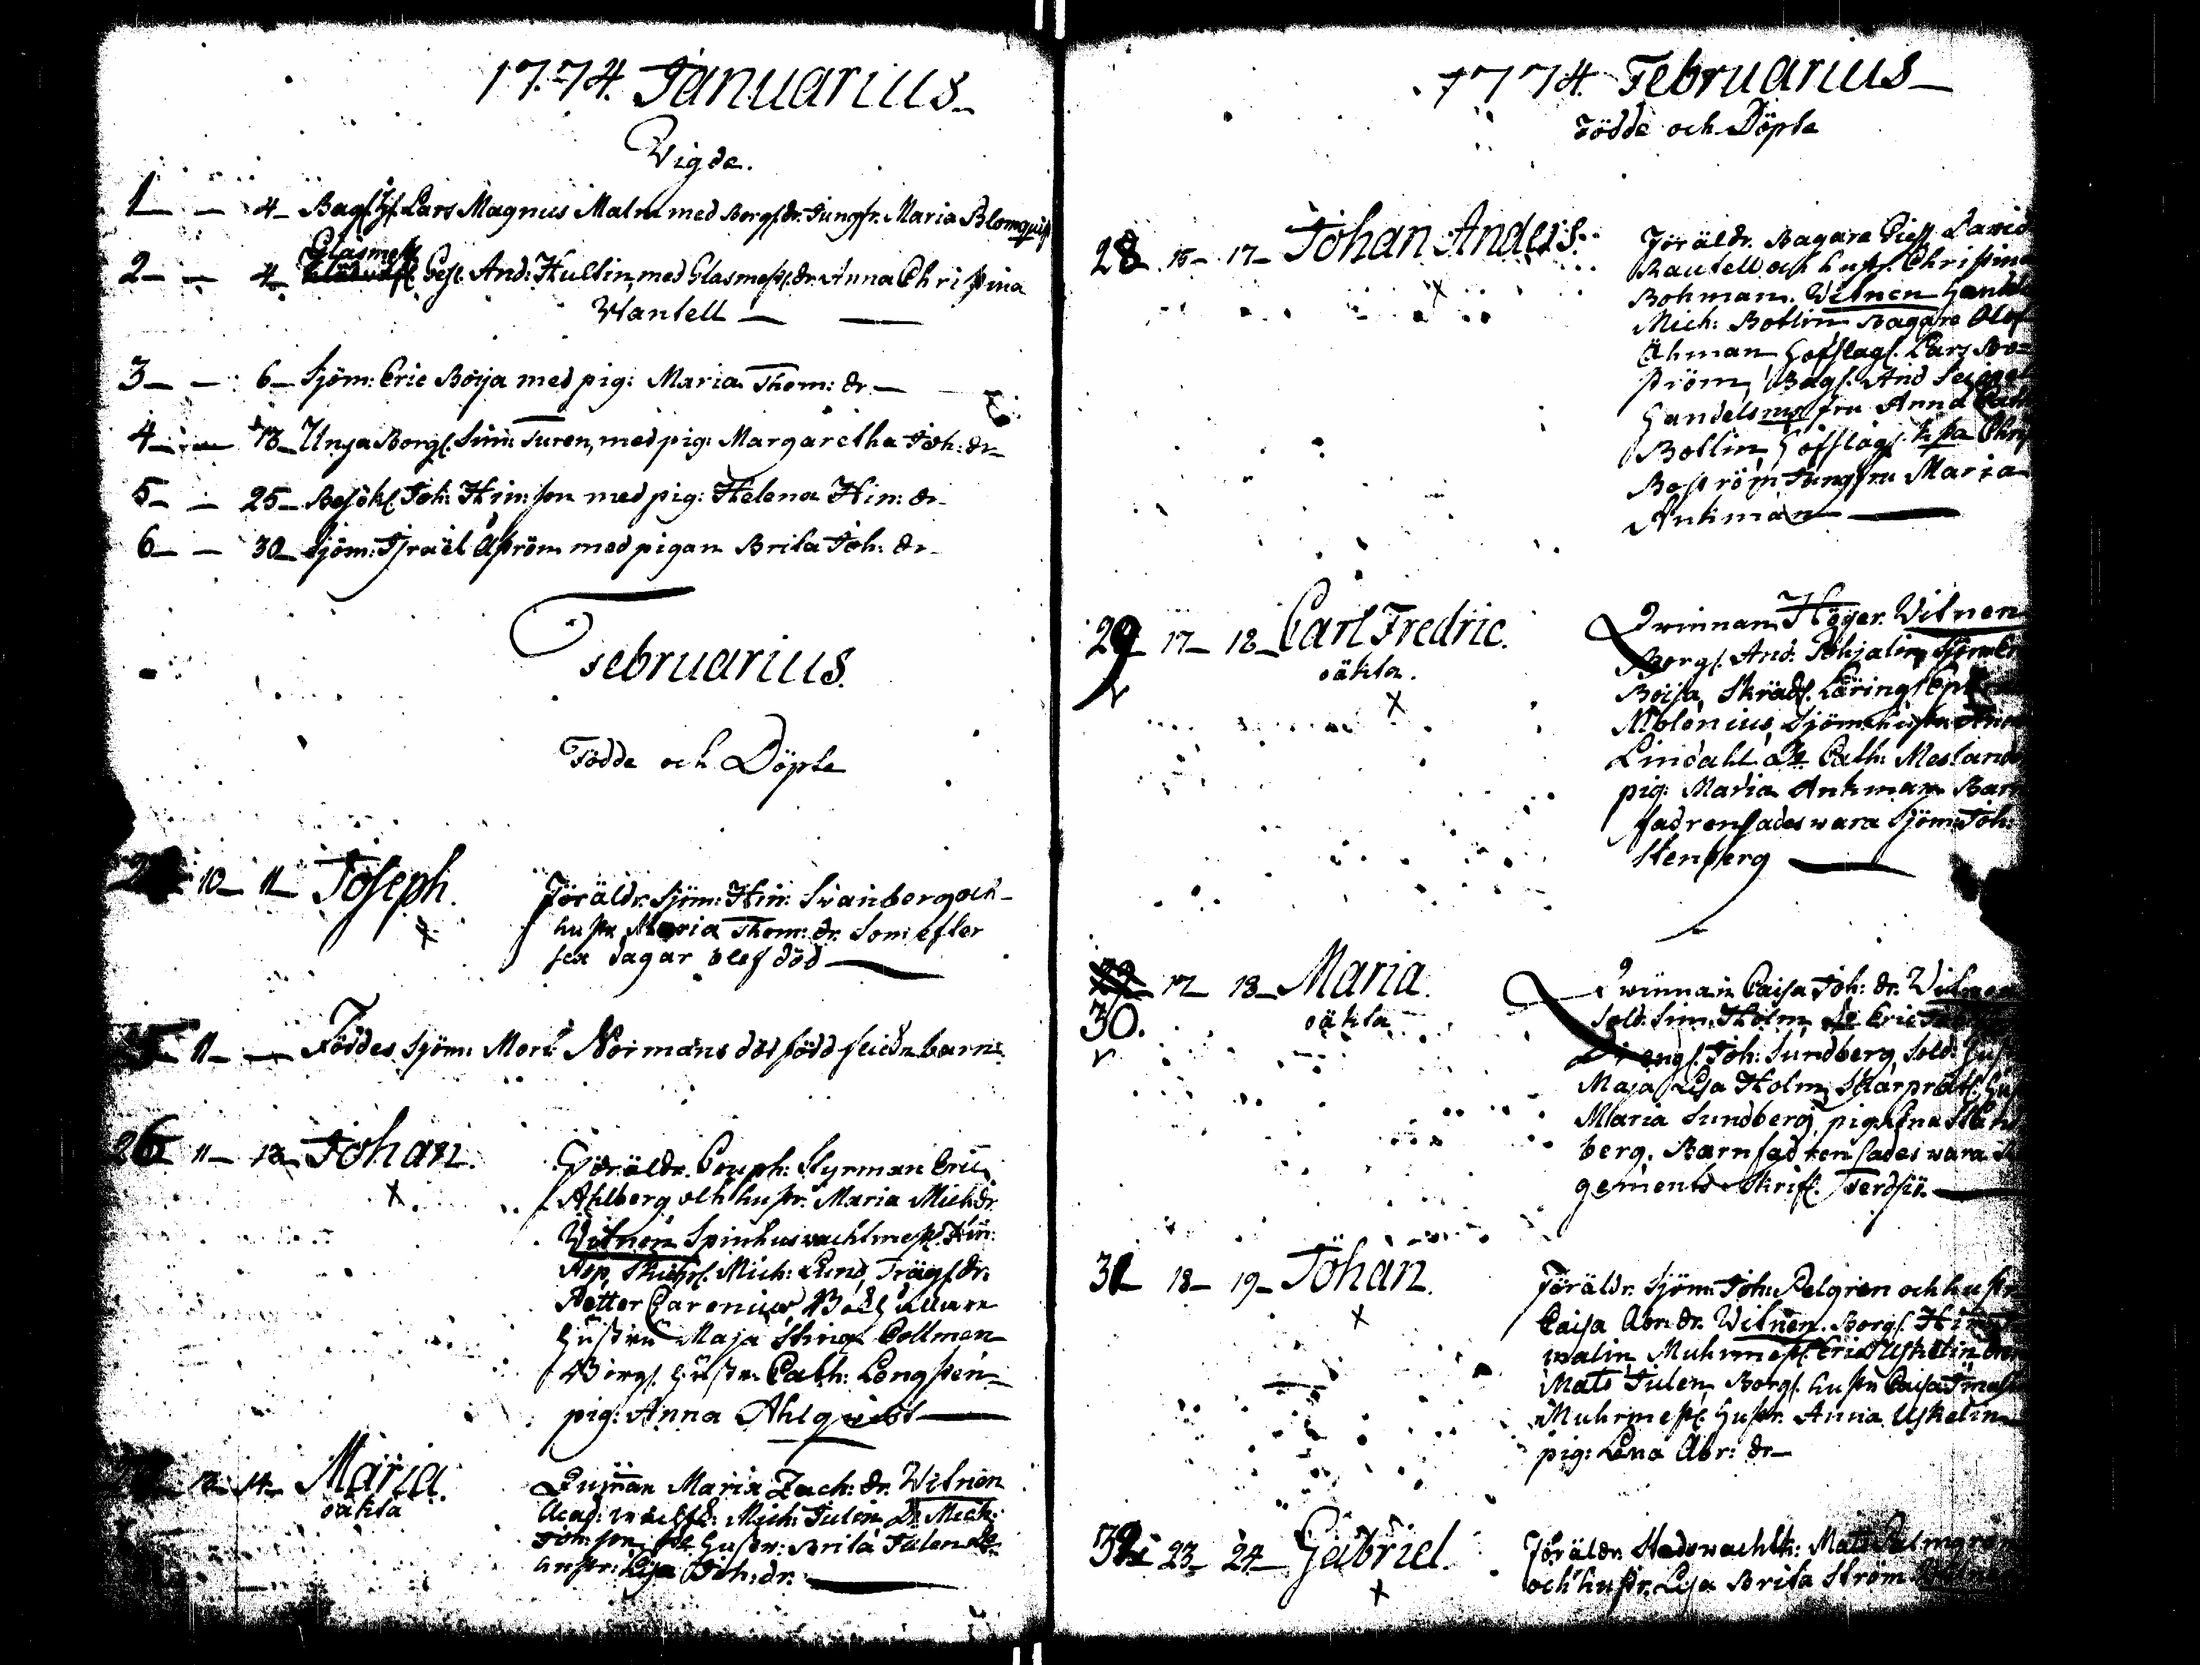 1774. Januarius
Vigde.
1 4 Bags. Gs. Lars Magnus Malm med Borgs. dr. Jungfr. Maria Blomquist
Glasmest.
2 4 Ges. And: Hultin, med Glasmest. dr. Anna Christina
Wantell
3 6 Sjöm: Eric Böija med pig: Maria Thom: dr
4 13 Unga Borgs. Sim: Turen, med pig: Margaretha Joh: dr
5 25 Besöks. Joh: Hin: son med pig: Helena Hin: dr
6 30 Sjöm: Israël Åström med pigan Brita Joh: dr
Februarius.
Födde och Döpte
10 11 Joseph.
Föräldr. Sjöm: Hin: Svanberg och
hustr. Maria Thom: dr. Som efter
sex dagar blef död
25 11 Föddes Sjöm: Mort: Normans död född flicko barn.
26 11 12 Johan.
Föräldr. Coupph: Styrman Eric
Ahlberg och hustr. Maria Mich: dr.
Witnen Spinhus wachtmest. Hin:
Asp, Mich: Lund, Trägs. dr.
Petter Carenius
Hustru Maja Stina Collmen
Borgs. Hustr. Cath: Longsten
pig: Anna Ahlqwist
13 14 Maria.
oäkta
Quinnan Maria Zach: dr. Witnen
Acad: Mich: Julin Dr. Mich:
Hustr. Brita Julen
hustr. Lisa Joh: dr.
1774. Februarius
Födde och Döpte
28 16 17 Johan Anders.
Föräldr. Bagare Gess. David
Rautell och hustr. Christina
Bohman. Witnen Handels
Mich: Bottin Bagare Olof
Åhman Hofslags. Lars Bo-
ström, Bags. And
Handelsms fru Anna Cath
Bottin Hofslags. hustr. Chris
Boström Jungfru Maria
Ankman
29 17 18 Carl Fredric.
oäkta.
Qwinnan Höger. Witnen
Borgs. And: Pohjalin, Sjöm: Er
Böija, Skrädd. Lärings.
Nibolenius, Sjöm: hustr.
Lindahl Cath: Mesland
pig: Maria Ankman Barn
fadren sades wara Sjöm: Joh:
Stenberg
29 17 18 Maria.
30. oäkta
Qwinnan Caisa Joh: dr. Witnen
Sold. Sim: Holm, Eric
Drengs. Joh: Sundberg, Sold: Hust
Maja Lisa Holm, Skarprätt. Hus
Maria Sundberg, pig: Lena Ståhl
berg. Barnfadren sades wara Re
gements Skrifv. Tverdsiö.
31 18 19 Johan.
Föräldr. Sjöm: Joh: Pelgren och hustr
Caisa Abr: dr. Witnen. Borgs. Hin
malin Muhrmest. Eric Uskelin
Mats Julen, Borgs. hustr Caisa
Muhrmest. Hustr. Anna Uskelin
pig: Lena Abr: dr
32 23 24 Gabriel.
Föräldr. Stadswachtk: Mats Palmgren
och hustr. Lisa Brita Ström